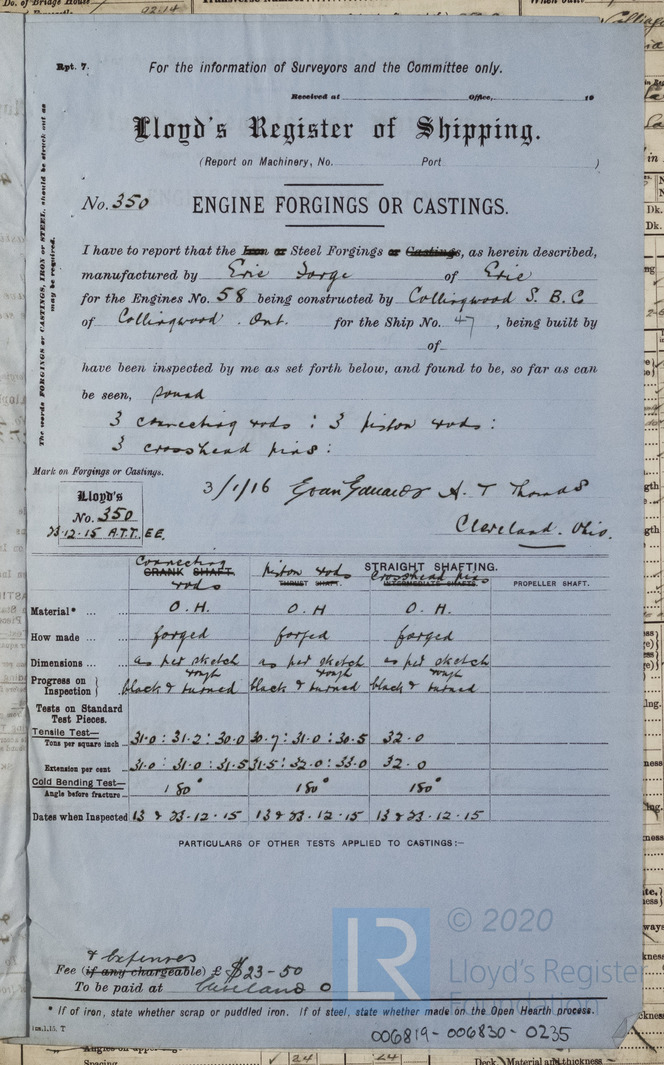 Do. of Bridge House
92.14
Rpt. 7.
For the information of Surveyors and the Committee only.
Received at Office, 19
Lloyd's Register of Shipping.
(Report on Machinery, No. Port )
No. 350 ENGINE FORGINGS OR CASTINGS.
The words FORGINGS or CASTINGS, IRON or STEEL, should be struck out as may be required.
I have to report that the Iron or Steel Forgings or Castings, as herein described,
manufactured by Erie Forge of Erie
for the Engines No. 58 being constructed by Collingwood S. B. C
of Collingwood . Ont. for the Ship No. 47 , being built by
of
have been inspected by me as set forth below, and found to be, so far as can
be seen, sound
3 connecting rods : 3 piston rods :
3 crosshead pins :
Mark on Forgings or Castings.
Lloyd's
No. 350
23.12.15 A.T.T. EE.
3/1/16 Evan Edwards A. T Thomas
Cleveland. Ohio.
Connecting rods CRANK SHAFT. Piston rods THRUST SHAFT. STRAIGHT SHAFTING. Crosshead pins INTERMEDIATE SHAFTS. PROPELLER SHAFT.
Material* ... ... O. H. O. H O. H.
How made ... forged forged forged
Dimensions ... ... as per sketch as per sketch as per sketch
Progress on Inspection } black & rough turned black & rough turned black & rough turned
Tests on Standard
Test Pieces.
Tensile Test—
Tons per square inch 31.0 : 31.2 : 30.0 30.7 : 31.0 : 30.5 32.0
Extension per cent 31.0 : 31.0 : 31.5 31.5 : 32.0 : 33.0 32.0
Cold Bending Test—
Angle before fracture 180° 180° 180°
Dates when Inspected 13 & 23.12.15 13 & 23.12.15 13 & 23.12.15
PARTICULARS OF OTHER TESTS APPLIED TO CASTINGS:—
& Expenses
Fee (if any chargeable) £ $23-50
To be paid at Cleveland O
* If of iron, state whether scrap or puddled iron. If of steel, state whether made on the Open Hearth process.
© 2020
Lloyd's Register
Foundation
006819-006830-0235